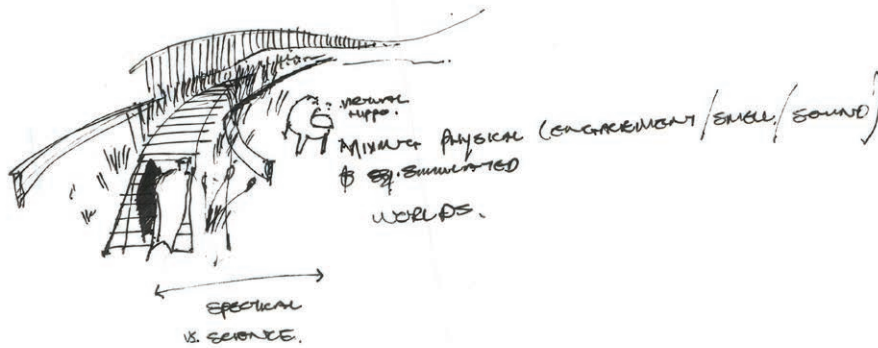 VIRTUAL
HIPPO.
MIXING PHYSICAL (ENGAGEMENT/SMELL/SOUND)
& SIMULATED
WORLDS.
SPECTICAL
VS. SCIENCE.